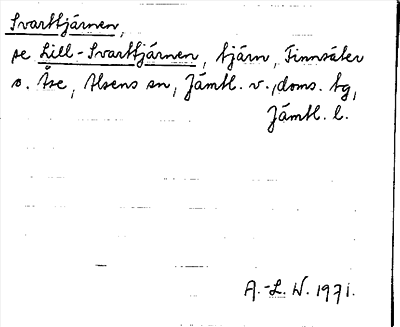 Svarttjärnen,
se Lill-Svarttjärnen, tjärn, Finnsäter
o. Åse, Alsens sn, Jämtl. v. doms. tg,
Jämtl. l.
A.-L. W. 1971.